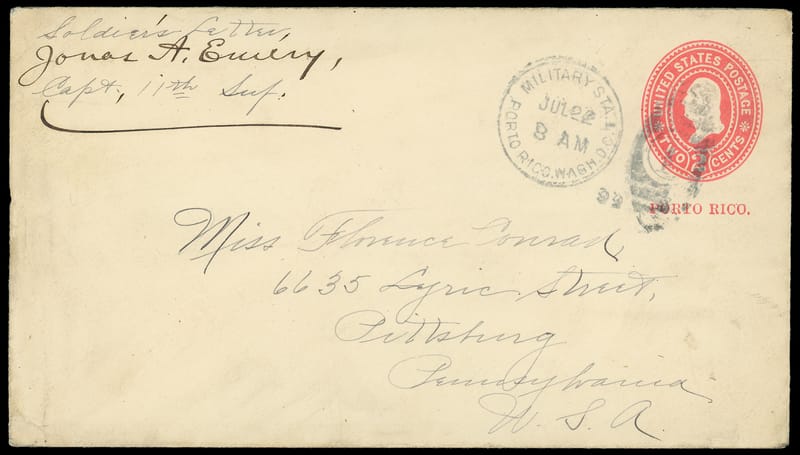 Soldier's Letter,
Jonas A. Emery,
Capt., 11th Inf.
MILITARY STA. 1.
PORTO RICO. WASH. D.C.
JUL 22
8 AM
99
UNITED STATES POSTAGE
TWO 2 CENTS
PORTO RICO.
Miss Florence Conrad,
6635 Lyric Street,
Pittsburg
Pennsylvania
U. S. A.